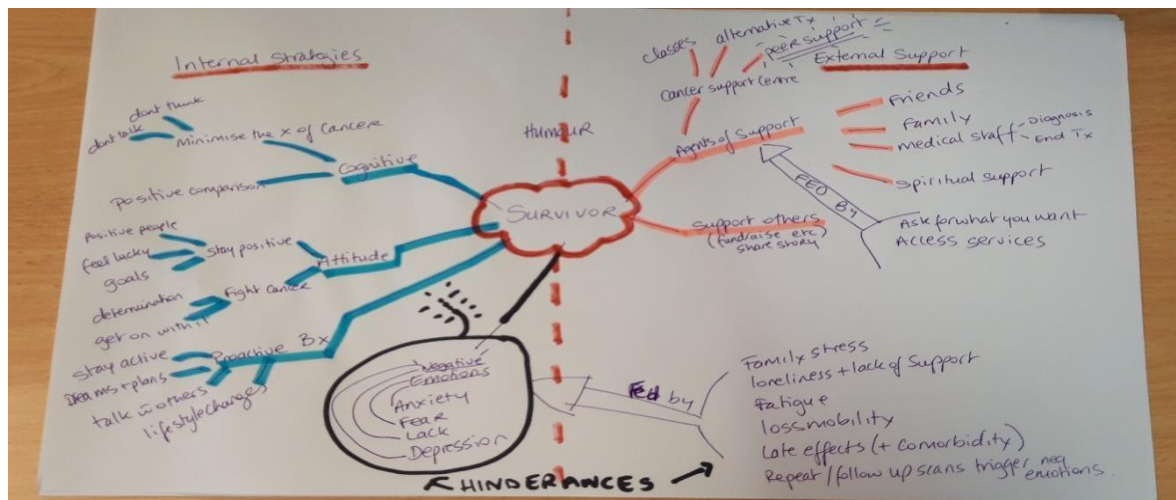 Internal Strategies
dont think
dont talk
Minimise the x of cancer
Cognitive
positive comparison
positive people
feel lucky
goals
Stay positive
Attitude
determination
get on with it
Fight cancer
Proactive Bx
stay active
Dreams + plans
talk w others
lifestyle changes
HUMOUR
SURVIVOR
classes
alternative Tx
peer support
cancer support centre
External Support
Agents of Support
Friends
Family
Medical staff
Diagnosis
End Tx
Spiritual support
FED By
Ask for what you want
Access services
Support others
(fundraise etc)
share story
Negative
Emotions
Anxiety
Fear
Lack
Depression
Fed by
Family stress
loneliness + lack of support
Fatigue
loss mobility
Late effects (+ comorbidity)
Repeat / follow up scans trigger neg
emotions
HINDERANCES